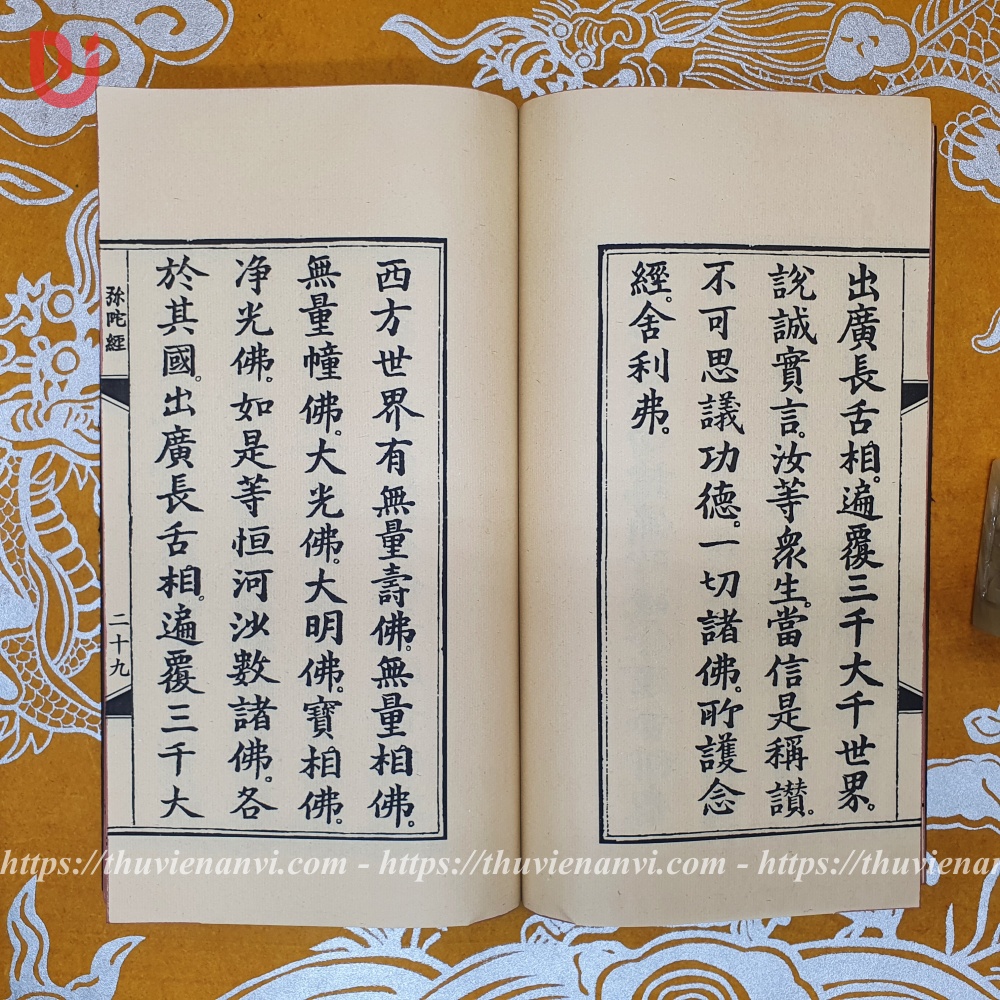 出廣長舌相。遍覆三千大千世界。
說誠實言。汝等衆生。當信是稱讃。
不可思議功德。一切諸佛。所護念
經。舍利弗。
西方世界有無量壽佛。無量相佛。
無量幢佛。大光佛。大明佛。寶相佛。
净光佛。如是等恒河沙數諸佛。各
於其國。出廣長舌相。遍覆三千大
弥陀經
二十九
https://thuvienanvi.com - https://thuvienanvi.com - https://thuviena